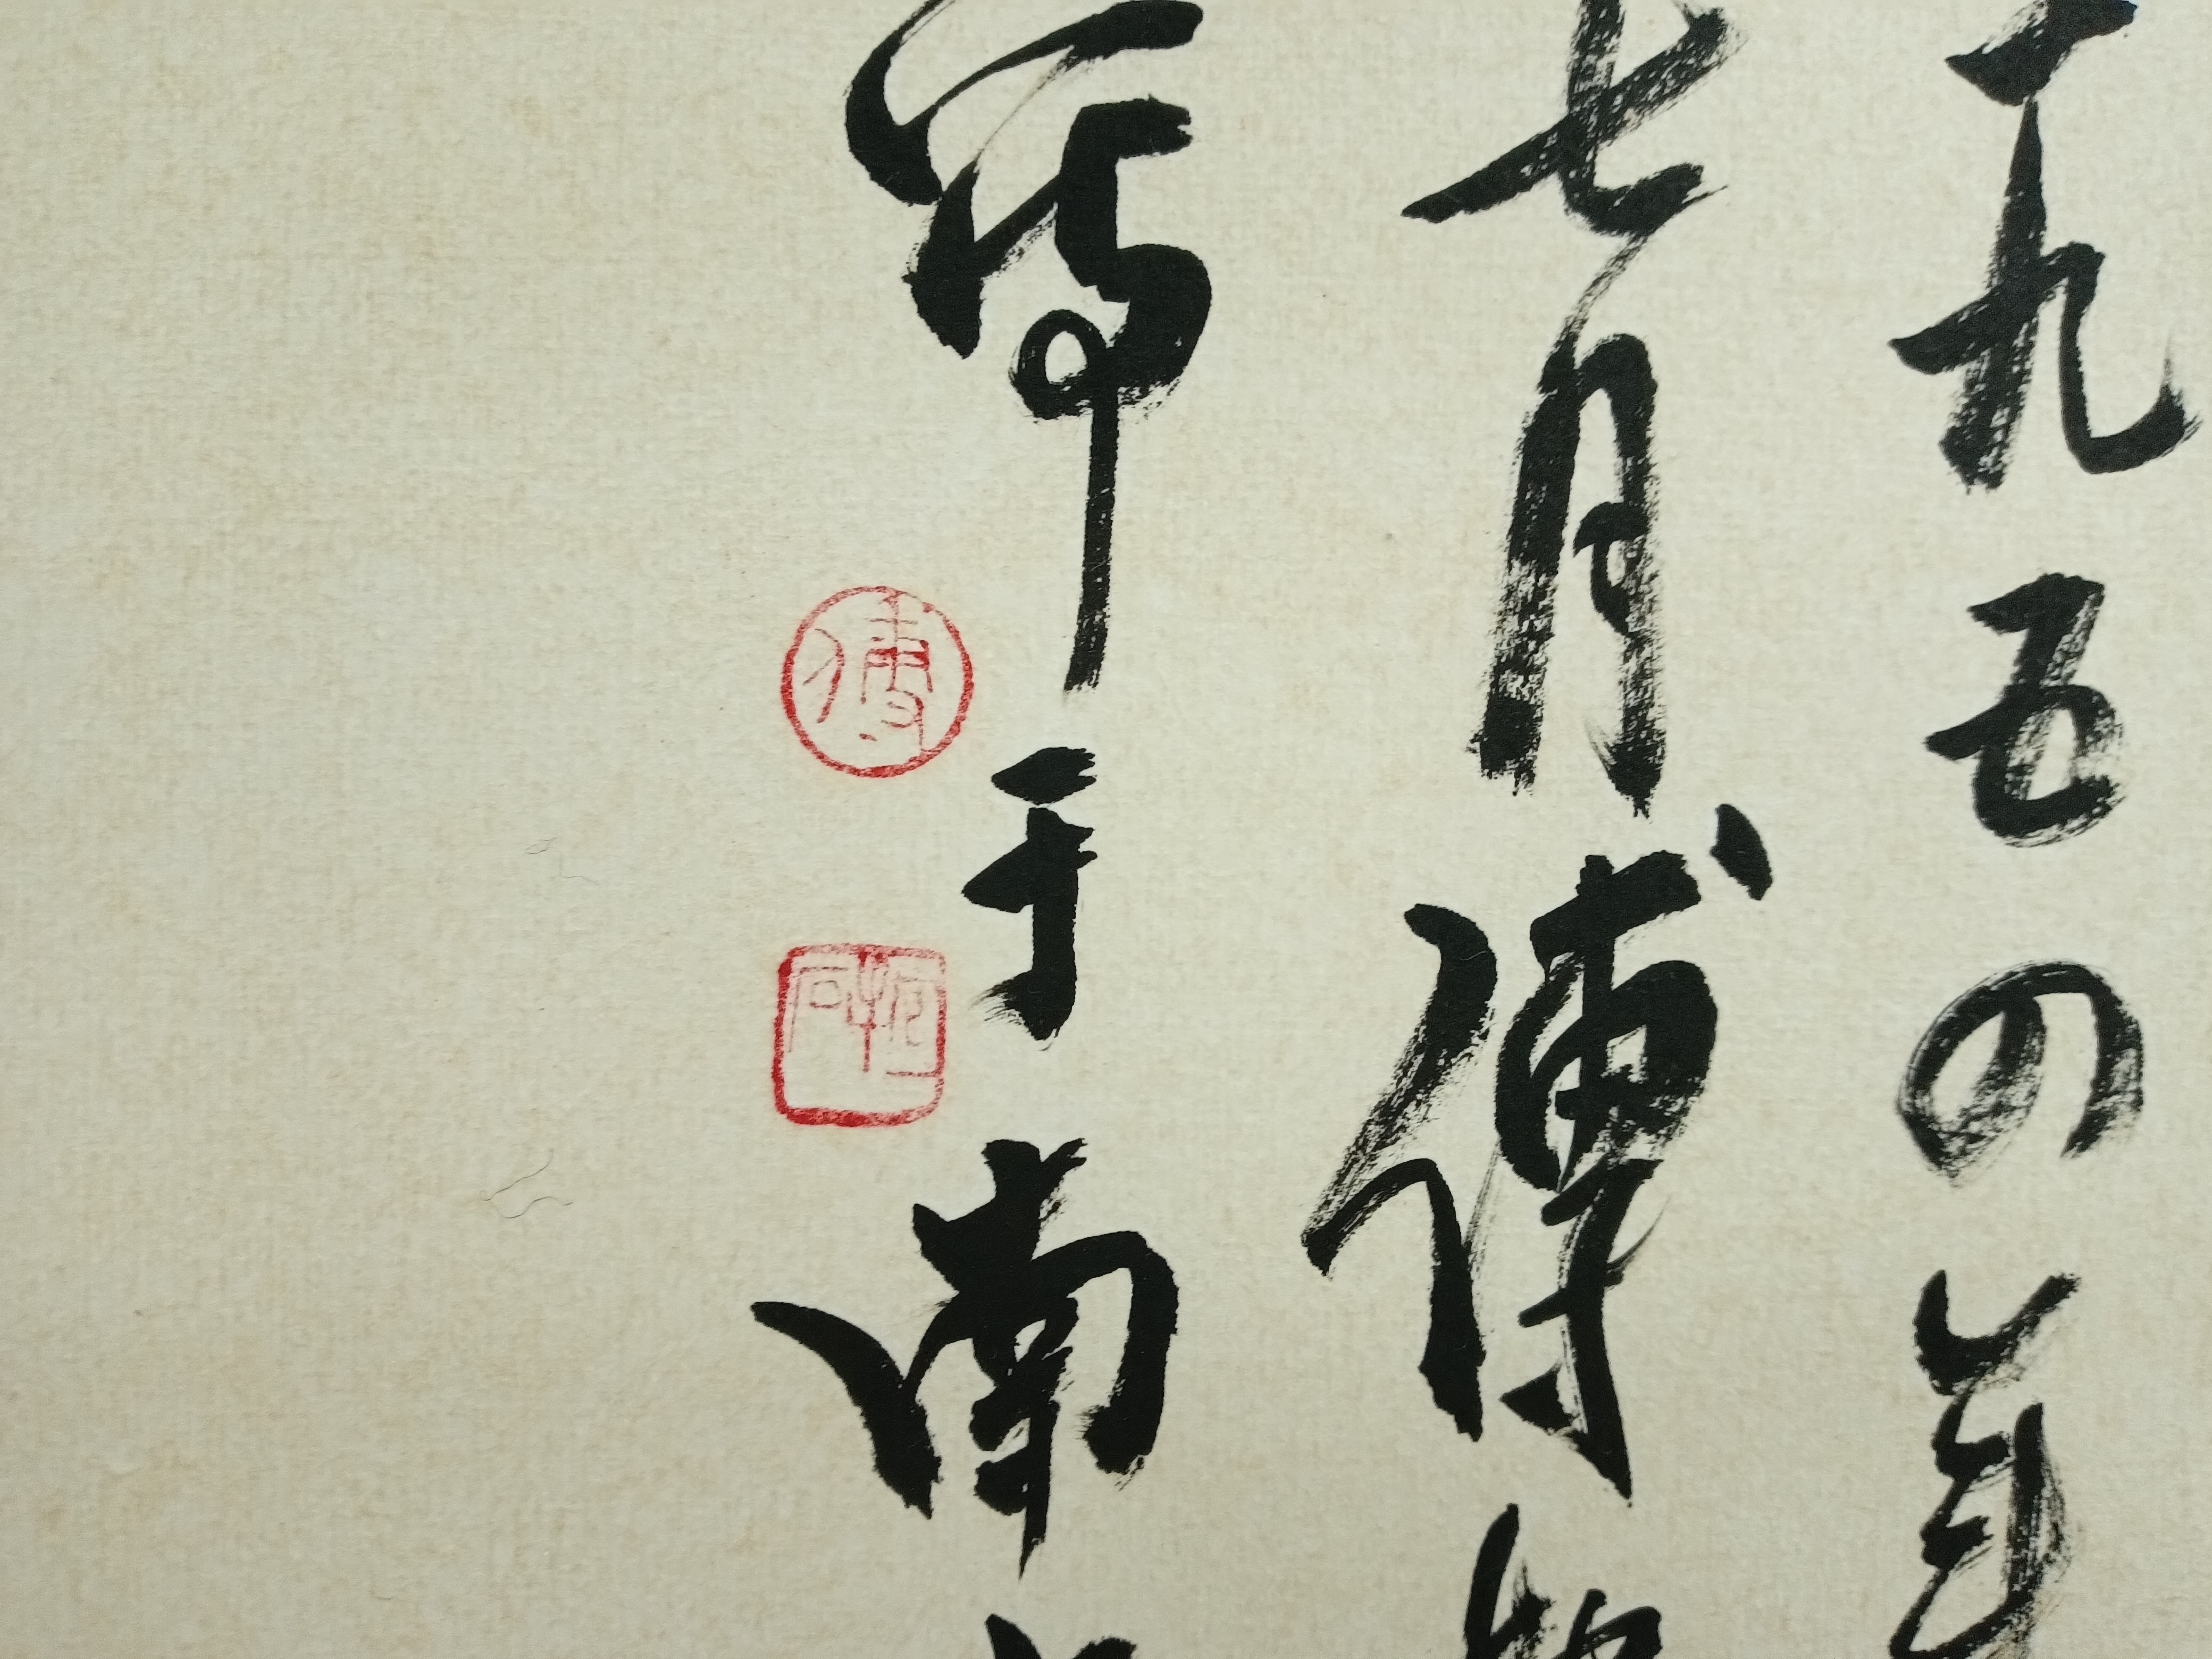 一九五四年
七月傅
寫于南
傅
抱石